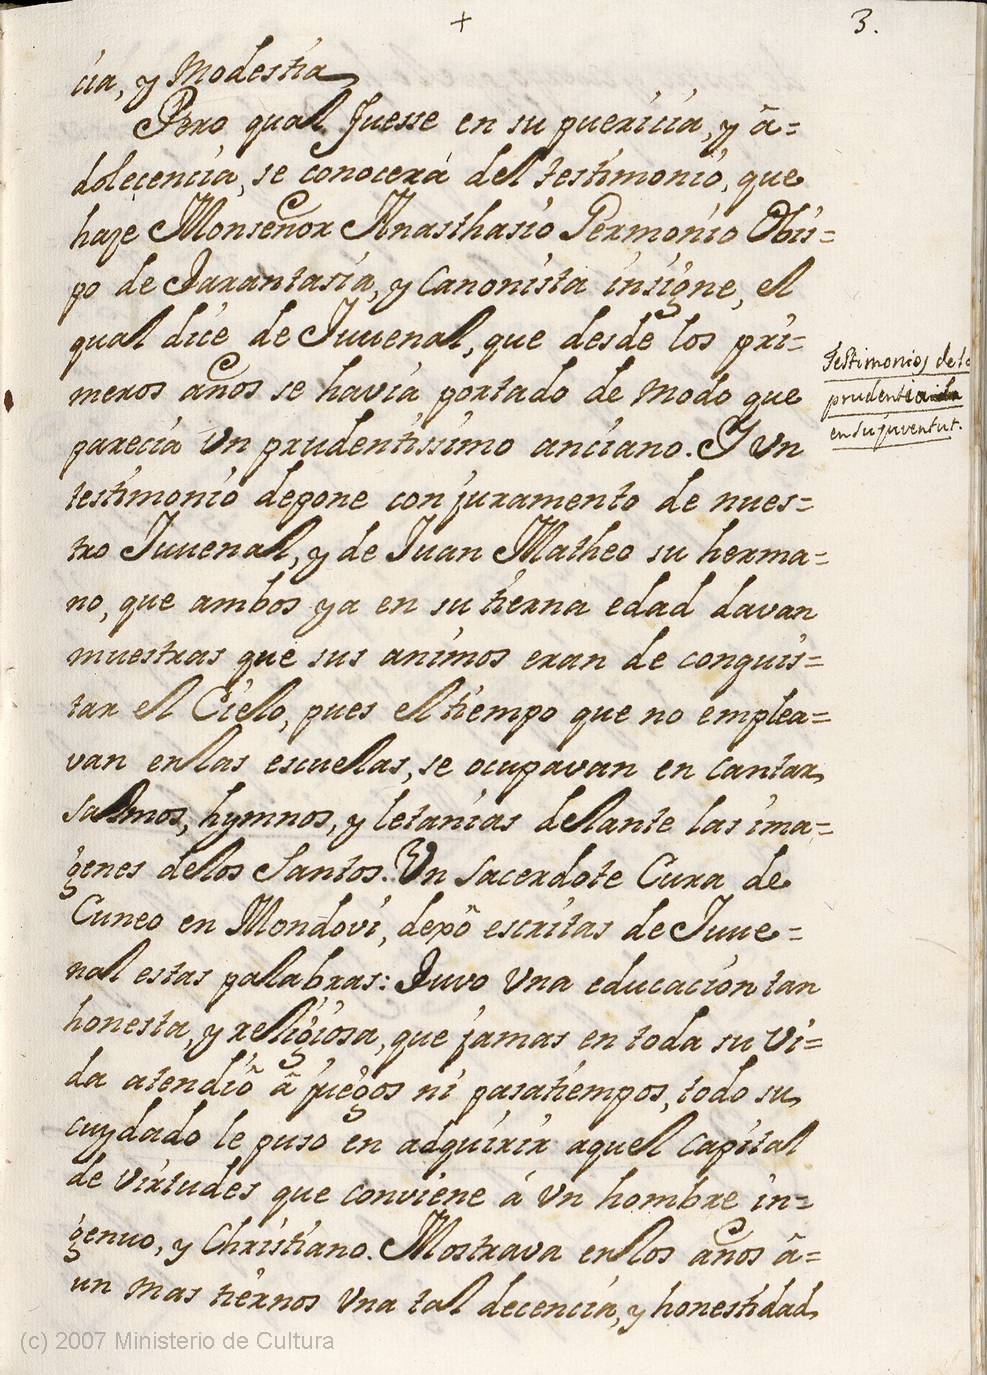 +
3.
cia, y Modestia
Pero qual fuesse en su puericia, y â=
dolecencia, se conocerá del testimonio, que
haze Monseñor Anasthasio Permonio Obis=
po de Tarantasia, y Canonista insigne, el
qual dice de Iuuenal, que desde los pri=
meros años se havia portado de modo que
parecia Un prudentissimo anciano. I Un
testimonio depone con juramento de nues=
tro Iuuenal, y de Iuan Matheo su herma=
no, que ambos ya en su tierna edad davan
muestras que sus animos eran de conquis=
tar el Cielo, pues el tiempo que no emplea=
van en las escuelas, se ocupavan en cantar
Salmos, hymnos, y letanias delante las ima=
genes delos Santos. Un Sacerdote Cura de
Cuneo en Mondovi, dexô escritas de Iuue=
nal estas palabras: Tuvo Una educacion tan
honesta, y religiosa, que jamas en toda su Vi=
da atendiô â juegos ni pasatiempos, todo su
cuydado le puso en adquirir aquel Capital
de Virtudes que conviene á Un hombre in=
genuo, y Christiano. Mostrava en los años â=
un mas tiernos Una tal decencia, y honestidad
Testimonios de la
prudentia
en su juventut.
(c) 2007 Ministerio de Cultura